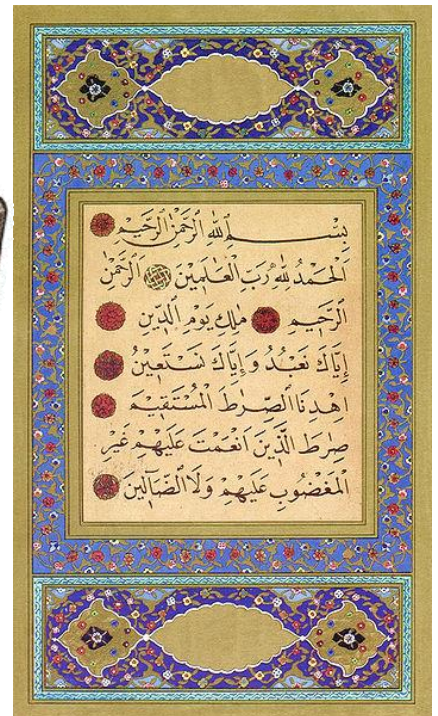 بِسْمِ اللهِ الرَّحْمٰنِ الرَّحِيمِ
اَلْحَمْدُ لِلّٰهِ رَبِّ الْعَالَمِينَ الرَّحْمٰنِ
الرَّحِيمِ مَالِكِ يَوْمِ الدِّينِ
إِيَّاكَ نَعْبُدُ وَإِيَّاكَ نَسْتَعِينُ
اِهْدِنَا الصِّرَاطَ الْمُسْتَقِيمَ
صِرَاطَ الَّذِينَ اَنْعَمْتَ عَلَيْهِمْ غَيْرِ
الْمَغْضُوبِ عَلَيْهِمْ وَلَا الضَّالِّينَ